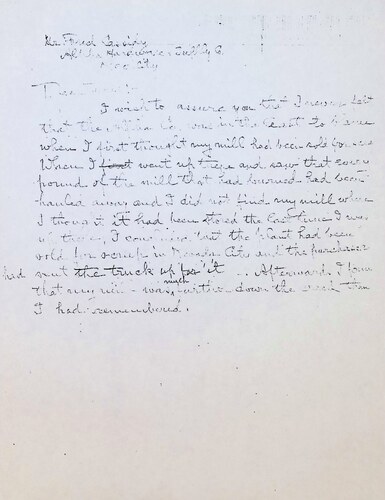 Mr. Fred Cassidy
Supply Co.
City
I wish to assure you that I never felt
that the was in the least to blame
when I first thought my mill had been sold for
When I first went up there and saw that every
pound of the mill that had burned had been
hauled away and I did not find my mill where
I thought it had been stored the last time I was
up there, I that the plant had been
sold for scrap in Nevada City and the purchaser
had sent the truck up for it Afterward I
that my mill was much further down the creek than
I had remembered.